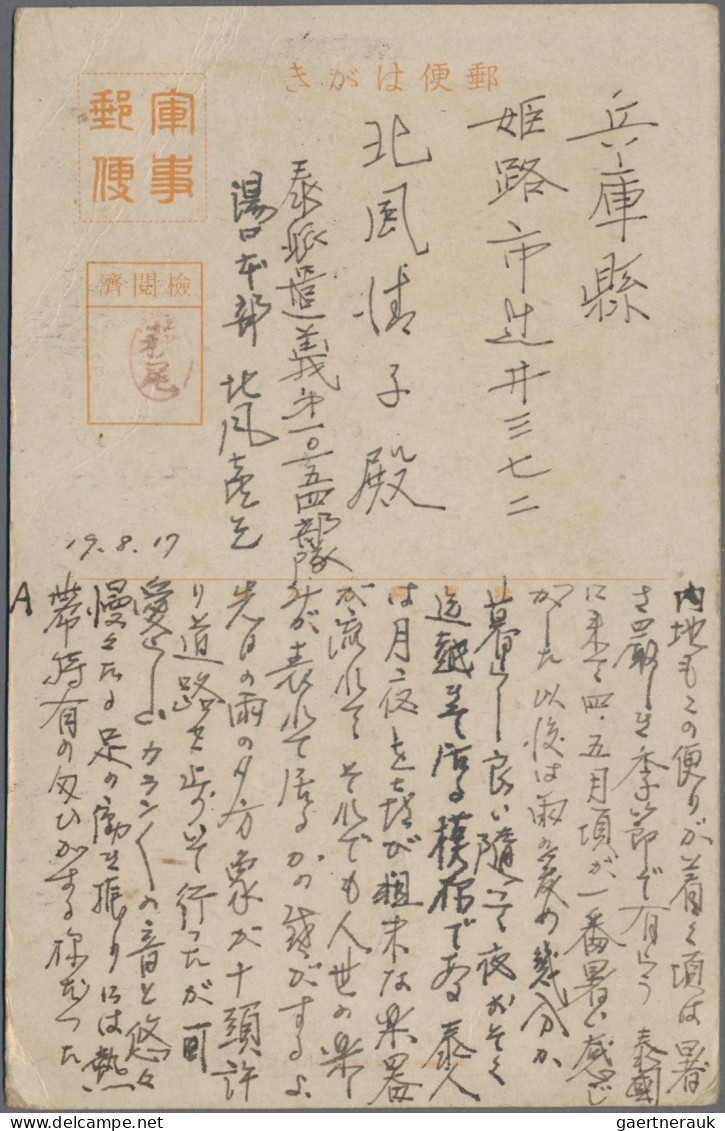 郵便はがき
軍事
郵便
検閲済
兵庫縣
姫路市辻井三七二
北風情子殿
泰派遣義第一〇一五四部隊
湯口本部 北風
19.8.17
内地もこの便りが着く頃は暑
さ厳しき季節で有らう 泰国
に来て四、五月頃が一番暑い感じ
がした以後は雨の為め幾分か
暮らし良い随って夜おそく
迄起きて居る模様である 泰人
は月夜
が粗末な楽器
が流れて それでも人世の楽し
みが表れて居るかの感がするよ
先日の雨の夕方象が十頭許
り道路を歩いて行ったが 可
愛らしいカランへの音と悠々
慢々たる足の動き振りには熱
帯特有の匂ひがする様だった
A
gaertnerauk
DELCAMPE.NET